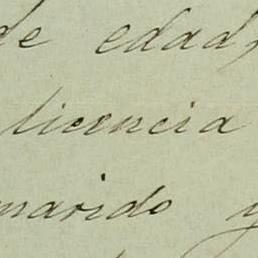 de edad,
licencia
marido y